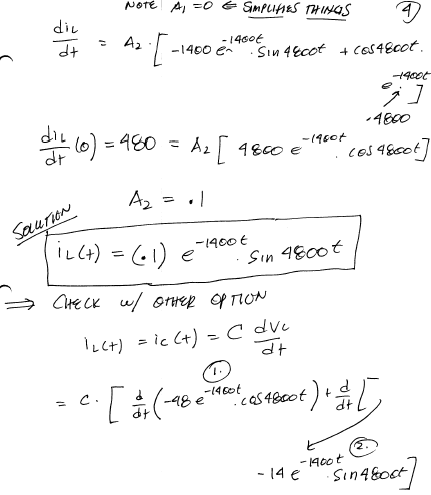 NOTE: A₁ = 0 ⇐ SIMPLIFIES THINGS
4
diL/dt = A₂ · [ -1400 e^-1400t · sin 4800t + cos 4800t ·
e^-1400t · 4800 ]
diL/dt (0) = 480 = A₂ [ 4800 e^-1400t · cos 4800t ]
A₂ = .1
SOLUTION
iL(t) = (.1) e^-1400t · sin 4800t
⇒ CHECK w/ OTHER OPTION
iL(t) = ic(t) = C dVc/dt
1.
= C · [ d/dt (-48 e^-1400t · cos 4800t) + d/dt [
2.
-14 e^-1400t · sin 4800t ]